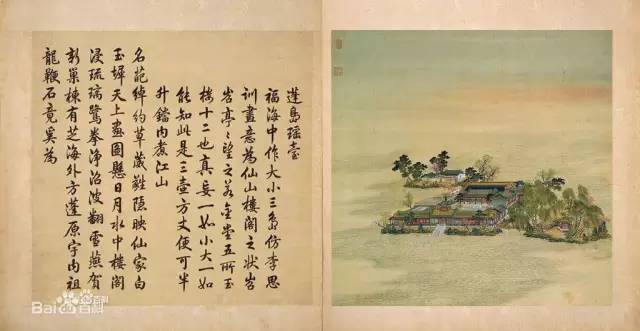 蓬島瑤臺
福海中作大小三島仿李思
訓畫意為仙山樓閣之狀岧
岧亭〻望之若金堂五所玉
樓十二也真妄一如小大一如
能知此是三壺方丈便可半
升鐺內煮江山
名葩綽約草葳蕤隱映仙家白
玉墀天上畫圖懸日月水中樓閣
浸琉璃鷺拳淨沼波翻雪燕賀
新巢棟有芝海外方蓬原宇內祖
龍鞭石竟奚為
Bai百科